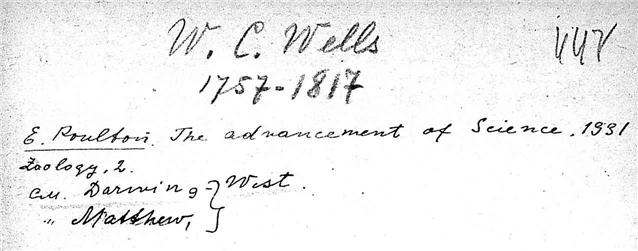 W. C. Wells
1757-1817
E. Poulton. The advancement of Science. 1931
Zoology, 2.
см. Darwin, } West.
„ Matthew, }